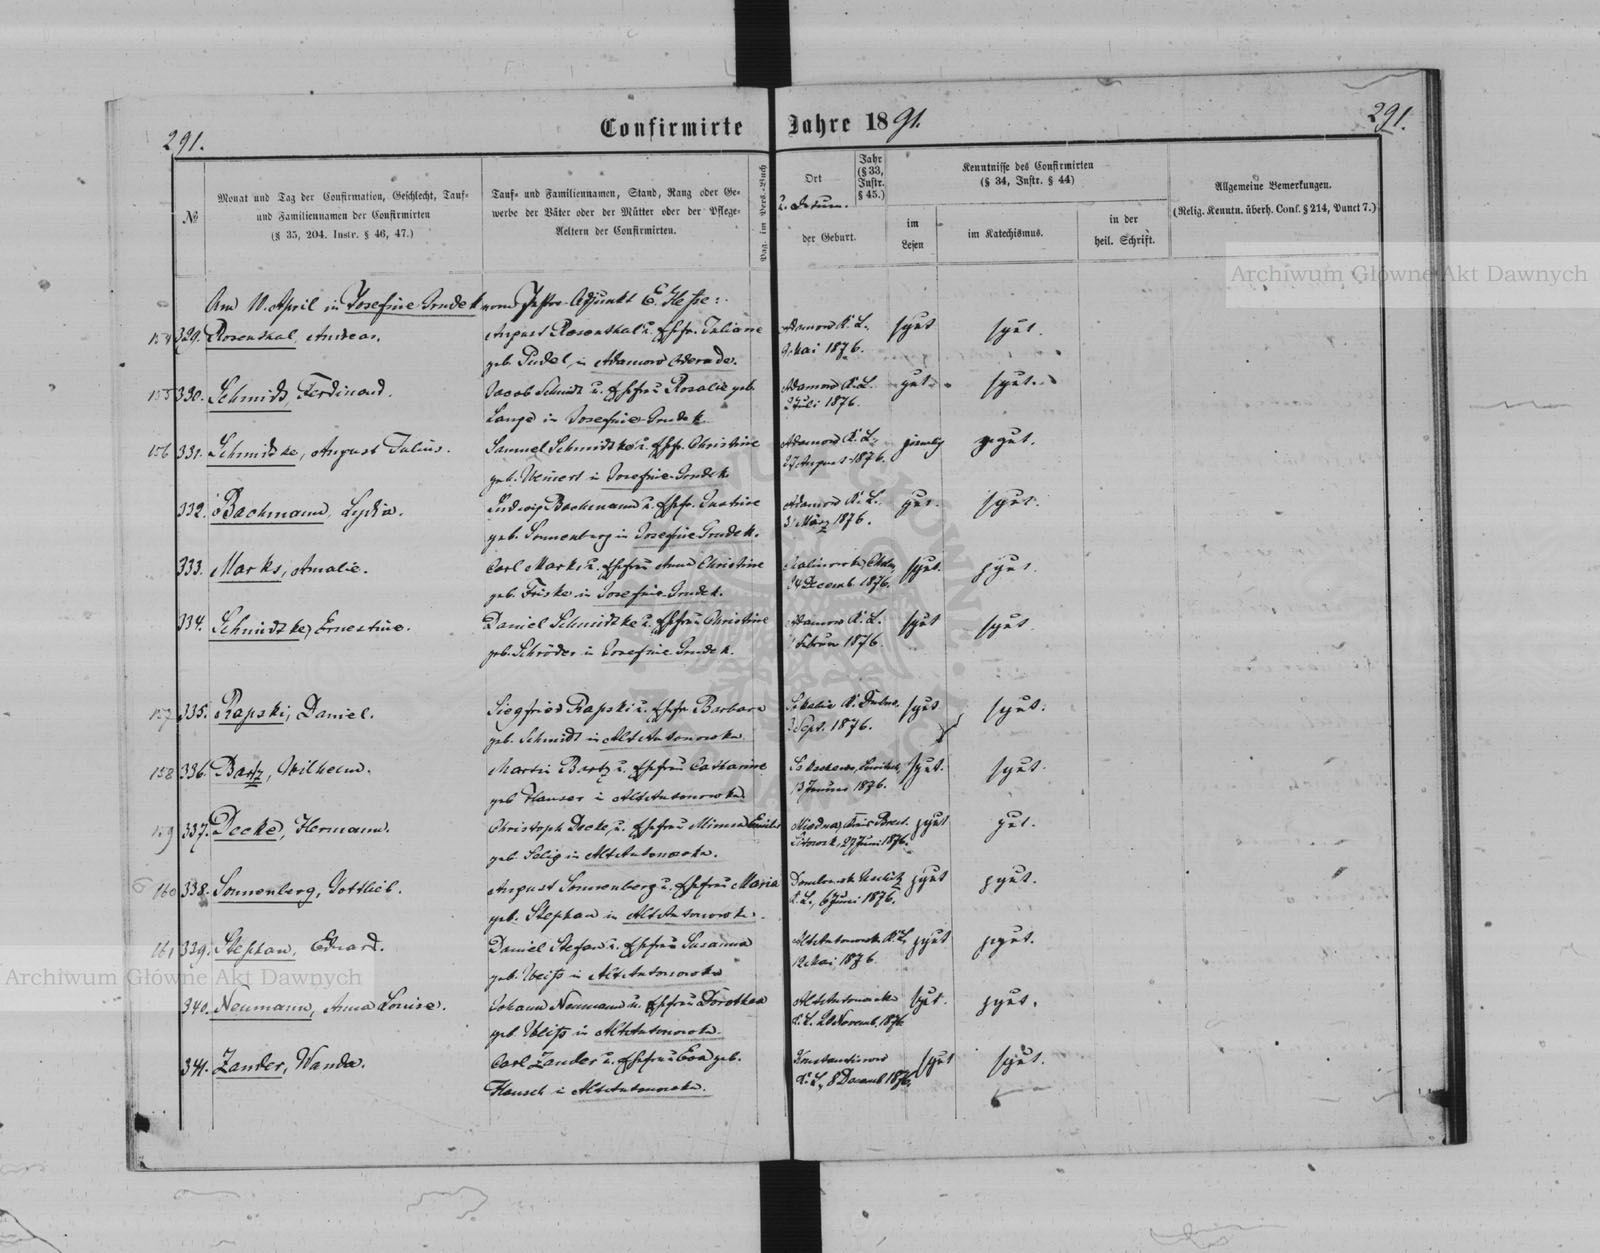 291.
Confirmirte
Jahre 1891.
291.
№
Monat und Tag der Confirmation, Geschlecht, Tauf-
und Familiennamen der Confirmirten
(§ 35, 204. Instr. § 46, 47.)
Tauf- und Familiennamen, Stand, Rang oder Ge-
werbe der Väter oder der Mütter oder der Pflege-
Aeltern der Confirmirten.
Pag. im Pers.-Buch
Ort
der Geburt.
Jahr
(§ 33,
Instr.
§ 45.)
Kenntnisse des Confirmirten
(§ 34, Instr. § 44)
im
Lesen
im Katechismus.
in der
heil. Schrift.
Allgemeine Bemerkungen.
(Relig. Kenntn. überh. Conf. § 214, Punct 7.)
Am 10. April in Josefine-Grudek vom Pastor-Adjunkt E. Hesse:
154 329. Rosenthal, Andreas. August Rosenthal u. Ehefr. Juliane Adamow K. L. s. gut s. gut.
geb. Pudel, in Adamow 9 Mai 1876.
155 330. Schmidt, Ferdinand. Jacob Schmidt u. Ehefrau Rosalie geb. Adamow K. L. gut s. gut.
Lange in Josefine-Grudek Juli 1876.
156 331. Schmidtke, August Julius. Samuel Schmidtke u. Ehefr. Christine Adamow K. L. ziemlich gut.
geb. Weinert in Josefine-Grudek 27 August 1876.
332. Bachmann, Lydia. Ludwig Bachmann u. Ehefr. Justine Adamow K. L. gut. s. gut.
geb. Sonnenberg in Josefine Grudek. 3 März 1876.
333. Marks, Amalie. Carl Marks u. Ehefrau Anna Christine Cholm s. gut. s. gut.
geb. Friske in Josefine-Grudek. 14 Decemb. 1876.
334. Schmidtke, Ernestine. Daniel Schmidtke u. Ehefrau Christine Adamow K. L. s. gut s. gut
geb. Schröder in Josefine Grudek. Februar 1876
157 335. Rapski, Daniel. Siegfried Rapski u. Ehefr. Barbara K. Dubno. s. gut s. gut.
geb. Schmidt in AltAntonowka Sept. 1876.
158 336. Bartz, Wilhelm. Martin Bartz u. Ehefrau Catharine s. gut. s. gut.
geb. Hauser in AltAntonowka 13 Januar 1876.
159 337. Decke, Hermann. Christoph Decke, u. Ehefrau Minna Emilie Kreis Brest. s. gut gut.
geb. Selig in AltAntonowka. Litowsk, 27 Juni 1876.
160 338. Sonnenberg, Gottlieb. August Sonnenberg u. Ehefrau Maria s. gut s. gut.
geb. Stephan in AltAntonowka. K. L., 6 Juni 1876.
161 339. Stephan, Eduard. Daniel Stefan u. Ehefrau Susanna AltAntonowka K. L. s. gut s. gut.
geb. Weiss in AltAntonowka 12 Mai 1876.
340. Neumann, Anna Louise. Johann Neumann u. Ehefrau Dorothea AltAntonowka s. gut. s. gut.
geb. Weiss in AltAntonowka. K. L. Novemb. 1876
341. Zander, Wanda. Carl Zander u. Ehefrau Eva geb. Konstantinow s. gut s. gut.
Hausch in AltAntonowka. K. L., 8 Decemb 1876.
Archiwum Główne Akt Dawnych
Archiwum Główne Akt Dawnych